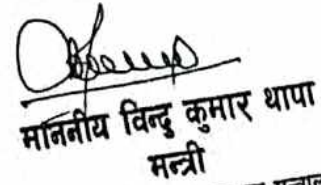 माननीय विन्दु कुमार थापा
मन्त्री